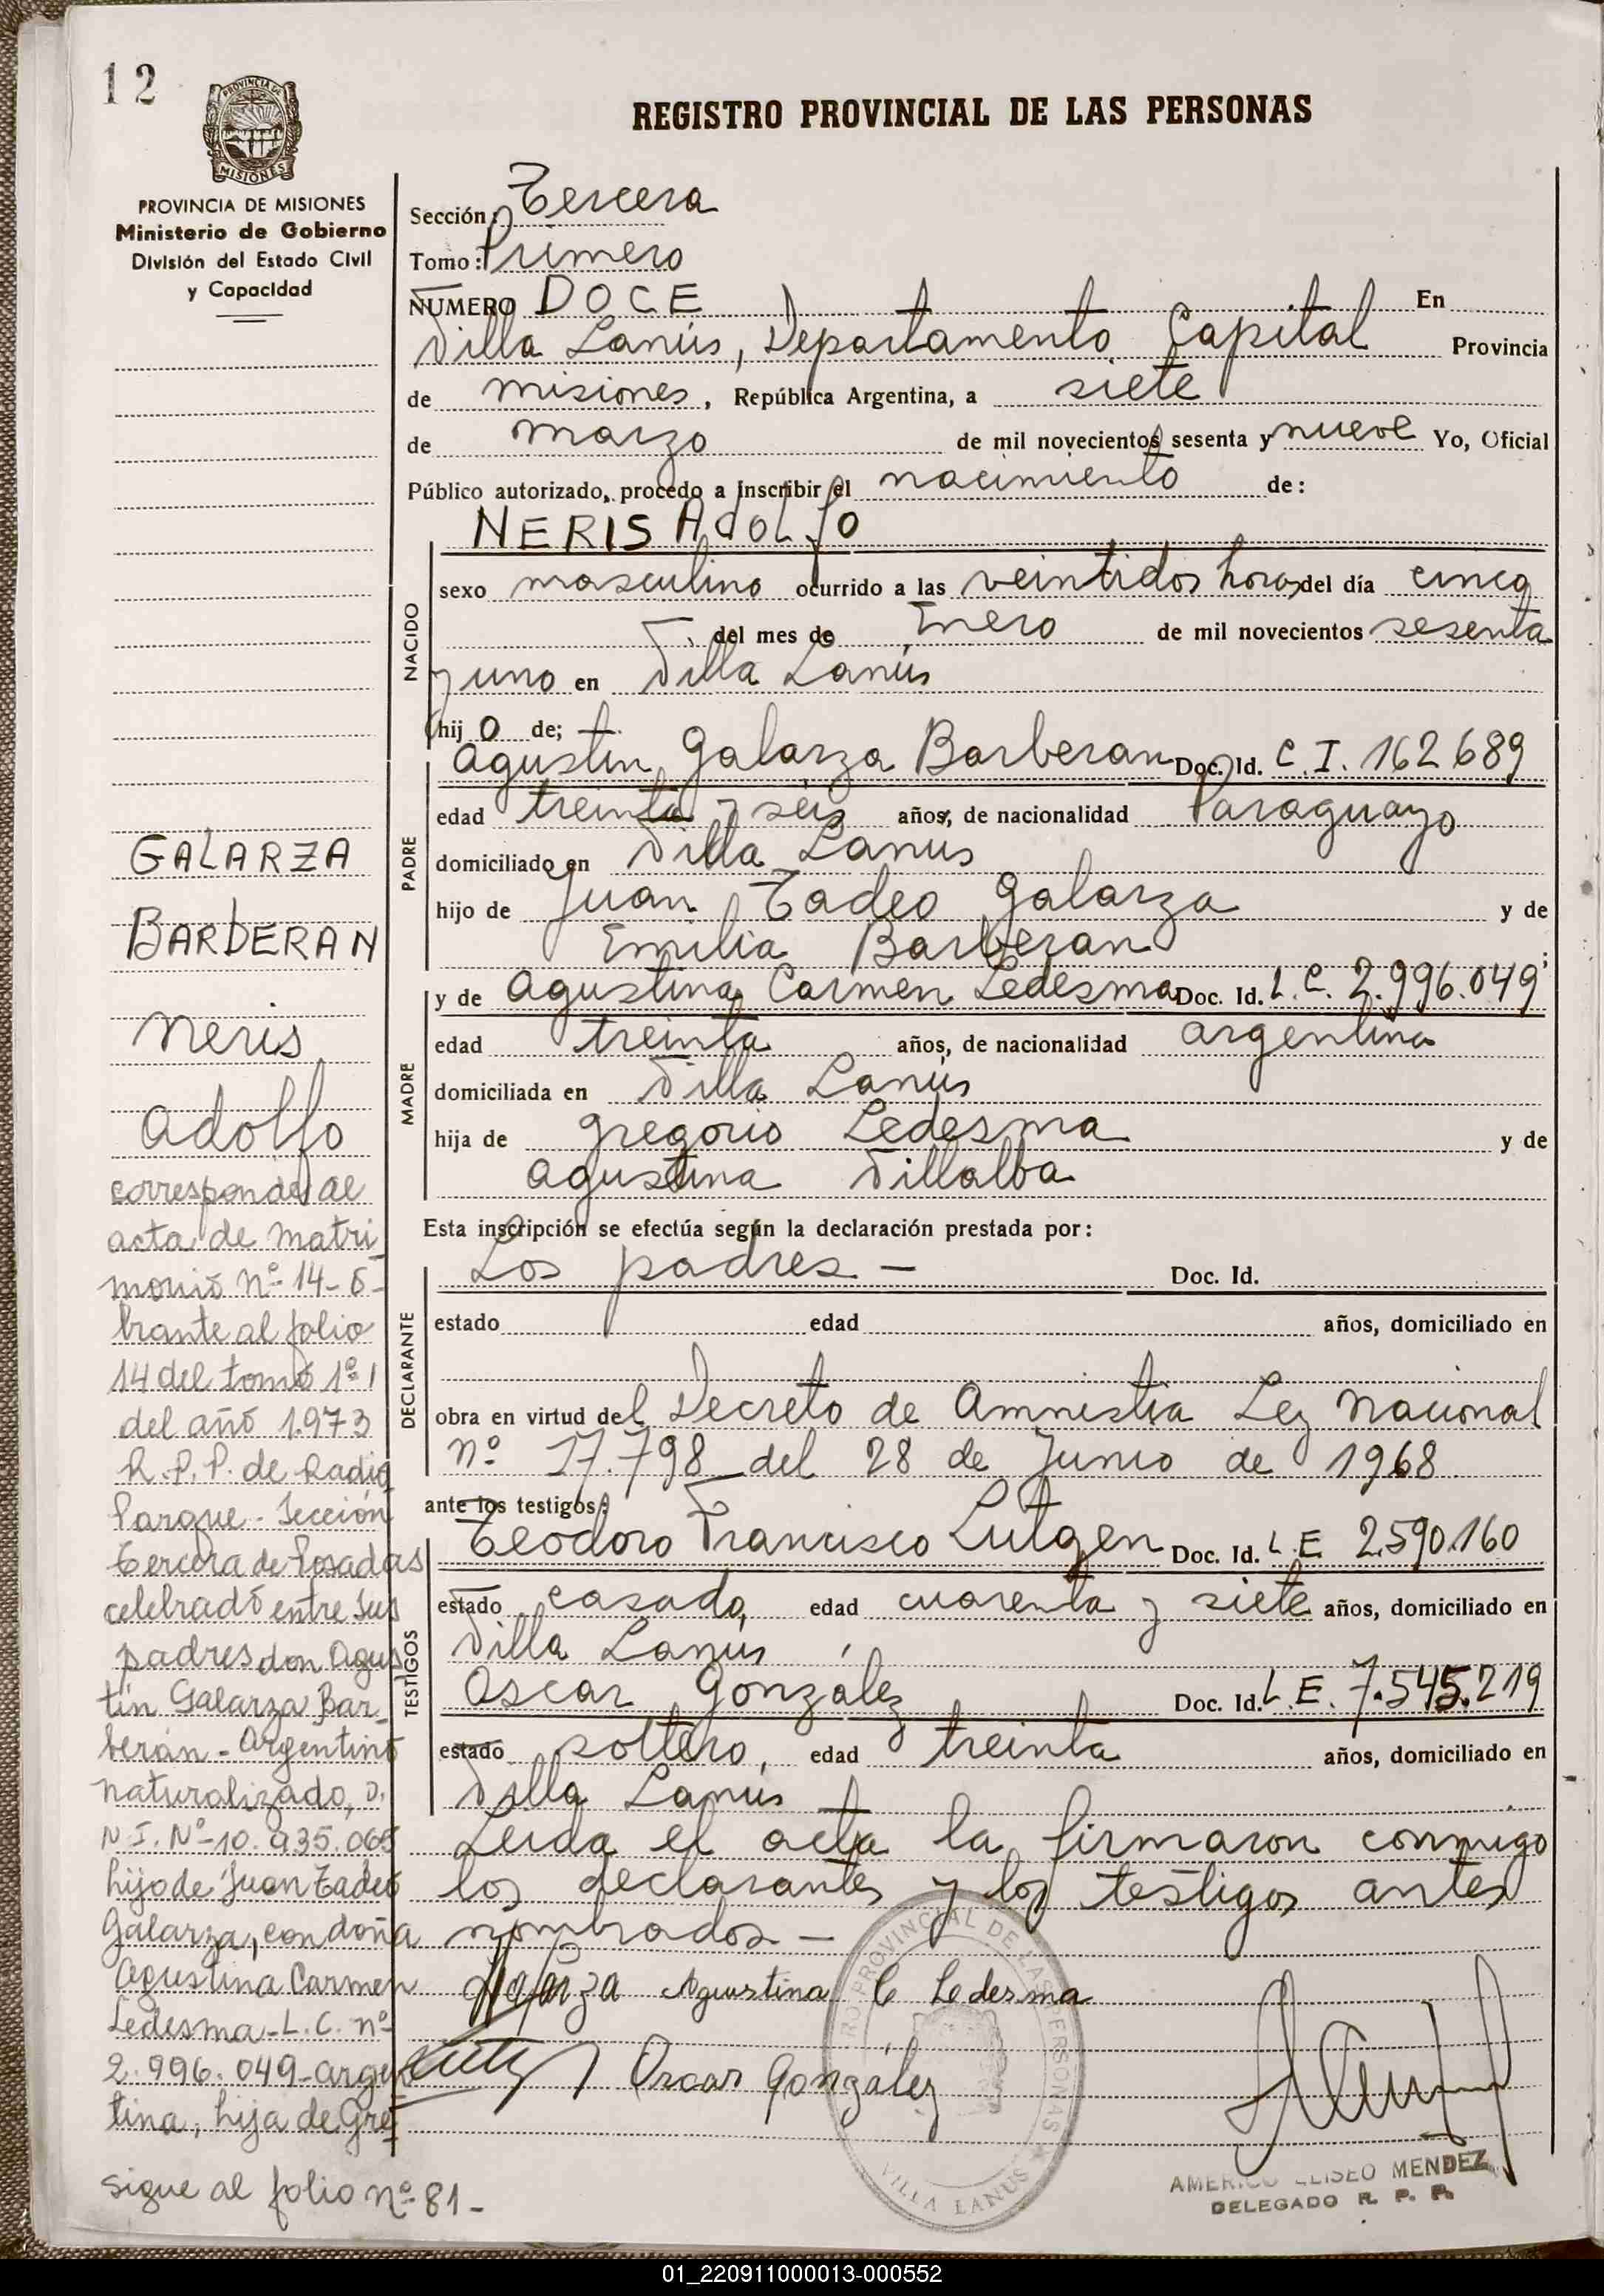 12
PROVINCIA DE
MISIONES
REGISTRO PROVINCIAL DE LAS PERSONAS
PROVINCIA DE MISIONES
Ministerio de Gobierno
División del Estado Civil
y Capacidad
Sección: Tercera
Tomo: Primero
NUMERO DOCE En
Villa Lanús, Departamento Capital Provincia
de misiones, República Argentina, a siete
de marzo de mil novecientos sesenta y nueve Yo, Oficial
Público autorizado, procedo a inscribir el nacimiento de:
NERIS ADOLFO
NACIDO
sexo masculino ocurrido a las veintidos horas del día cinco
del mes de Enero de mil novecientos sesenta
y uno en Villa Lanús
hijo de;
PADRE
Agustin Galarza Barberan Doc. Id. C.I. 162689
edad treinta y seis años, de nacionalidad Paraguayo
domiciliado en Villa Lanus
hijo de Juan Tadeo Galarza y de
Emilia Barberan;
MADRE
y de Agustina Carmen Ledesma Doc. Id. L.C. 2.996.049
edad treinta años, de nacionalidad argentina
domiciliada en Villa Lanús
hija de Gregorio Ledesma y de
Agustina Villalba
Esta inscripción se efectúa según la declaración prestada por:
DECLARANTE
Los padres - Doc. Id.
estado edad años, domiciliado en
obra en virtud del Decreto de Amnistia Ley Nacional
Nº 17.798 del 28 de Junio de 1968
ante los testigos:
TESTIGOS
Teodoro Francisco Lutgen Doc. Id. L.E. 2.590.160
estado casado, edad cuarenta y siete años, domiciliado en
Villa Lanús,
Oscar González Doc. Id. L.E. 7.545.219
estado soltero, edad treinta años, domiciliado en
Villa Lanús
Leida el acta la firmaron conmigo
los declarantes y los testigos antes
nombrados -
Galarza Agustina C Ledesma
Oscar González
REGISTRO PROVINCIAL DE LAS PERSONAS
VILLA LANUS
AMERICO ELISEO MENDEZ
DELEGADO R. P. P.
GALARZA
BARBERAN
Neris
Adolfo
corresponde al
acta de matri-
monio Nº 14-o-
brante al folio
14 del tomo 1º
del año 1.973
R.P.P. de Radio
Parque - Sección
Tercera de Posadas
celebrado entre sus
padres don Agus
tín Galarza Bar-
berán - Argentino
naturalizado, D.
N.I. Nº 10.935.065
hijo de Juan Tadeo
Galarza, con doña
Agustina Carmen
Ledesma - L.C. nº
2.996.049 - argen
tina, hija de Gre-
sigue al folio Nº 81 -
01_220911000013-000552